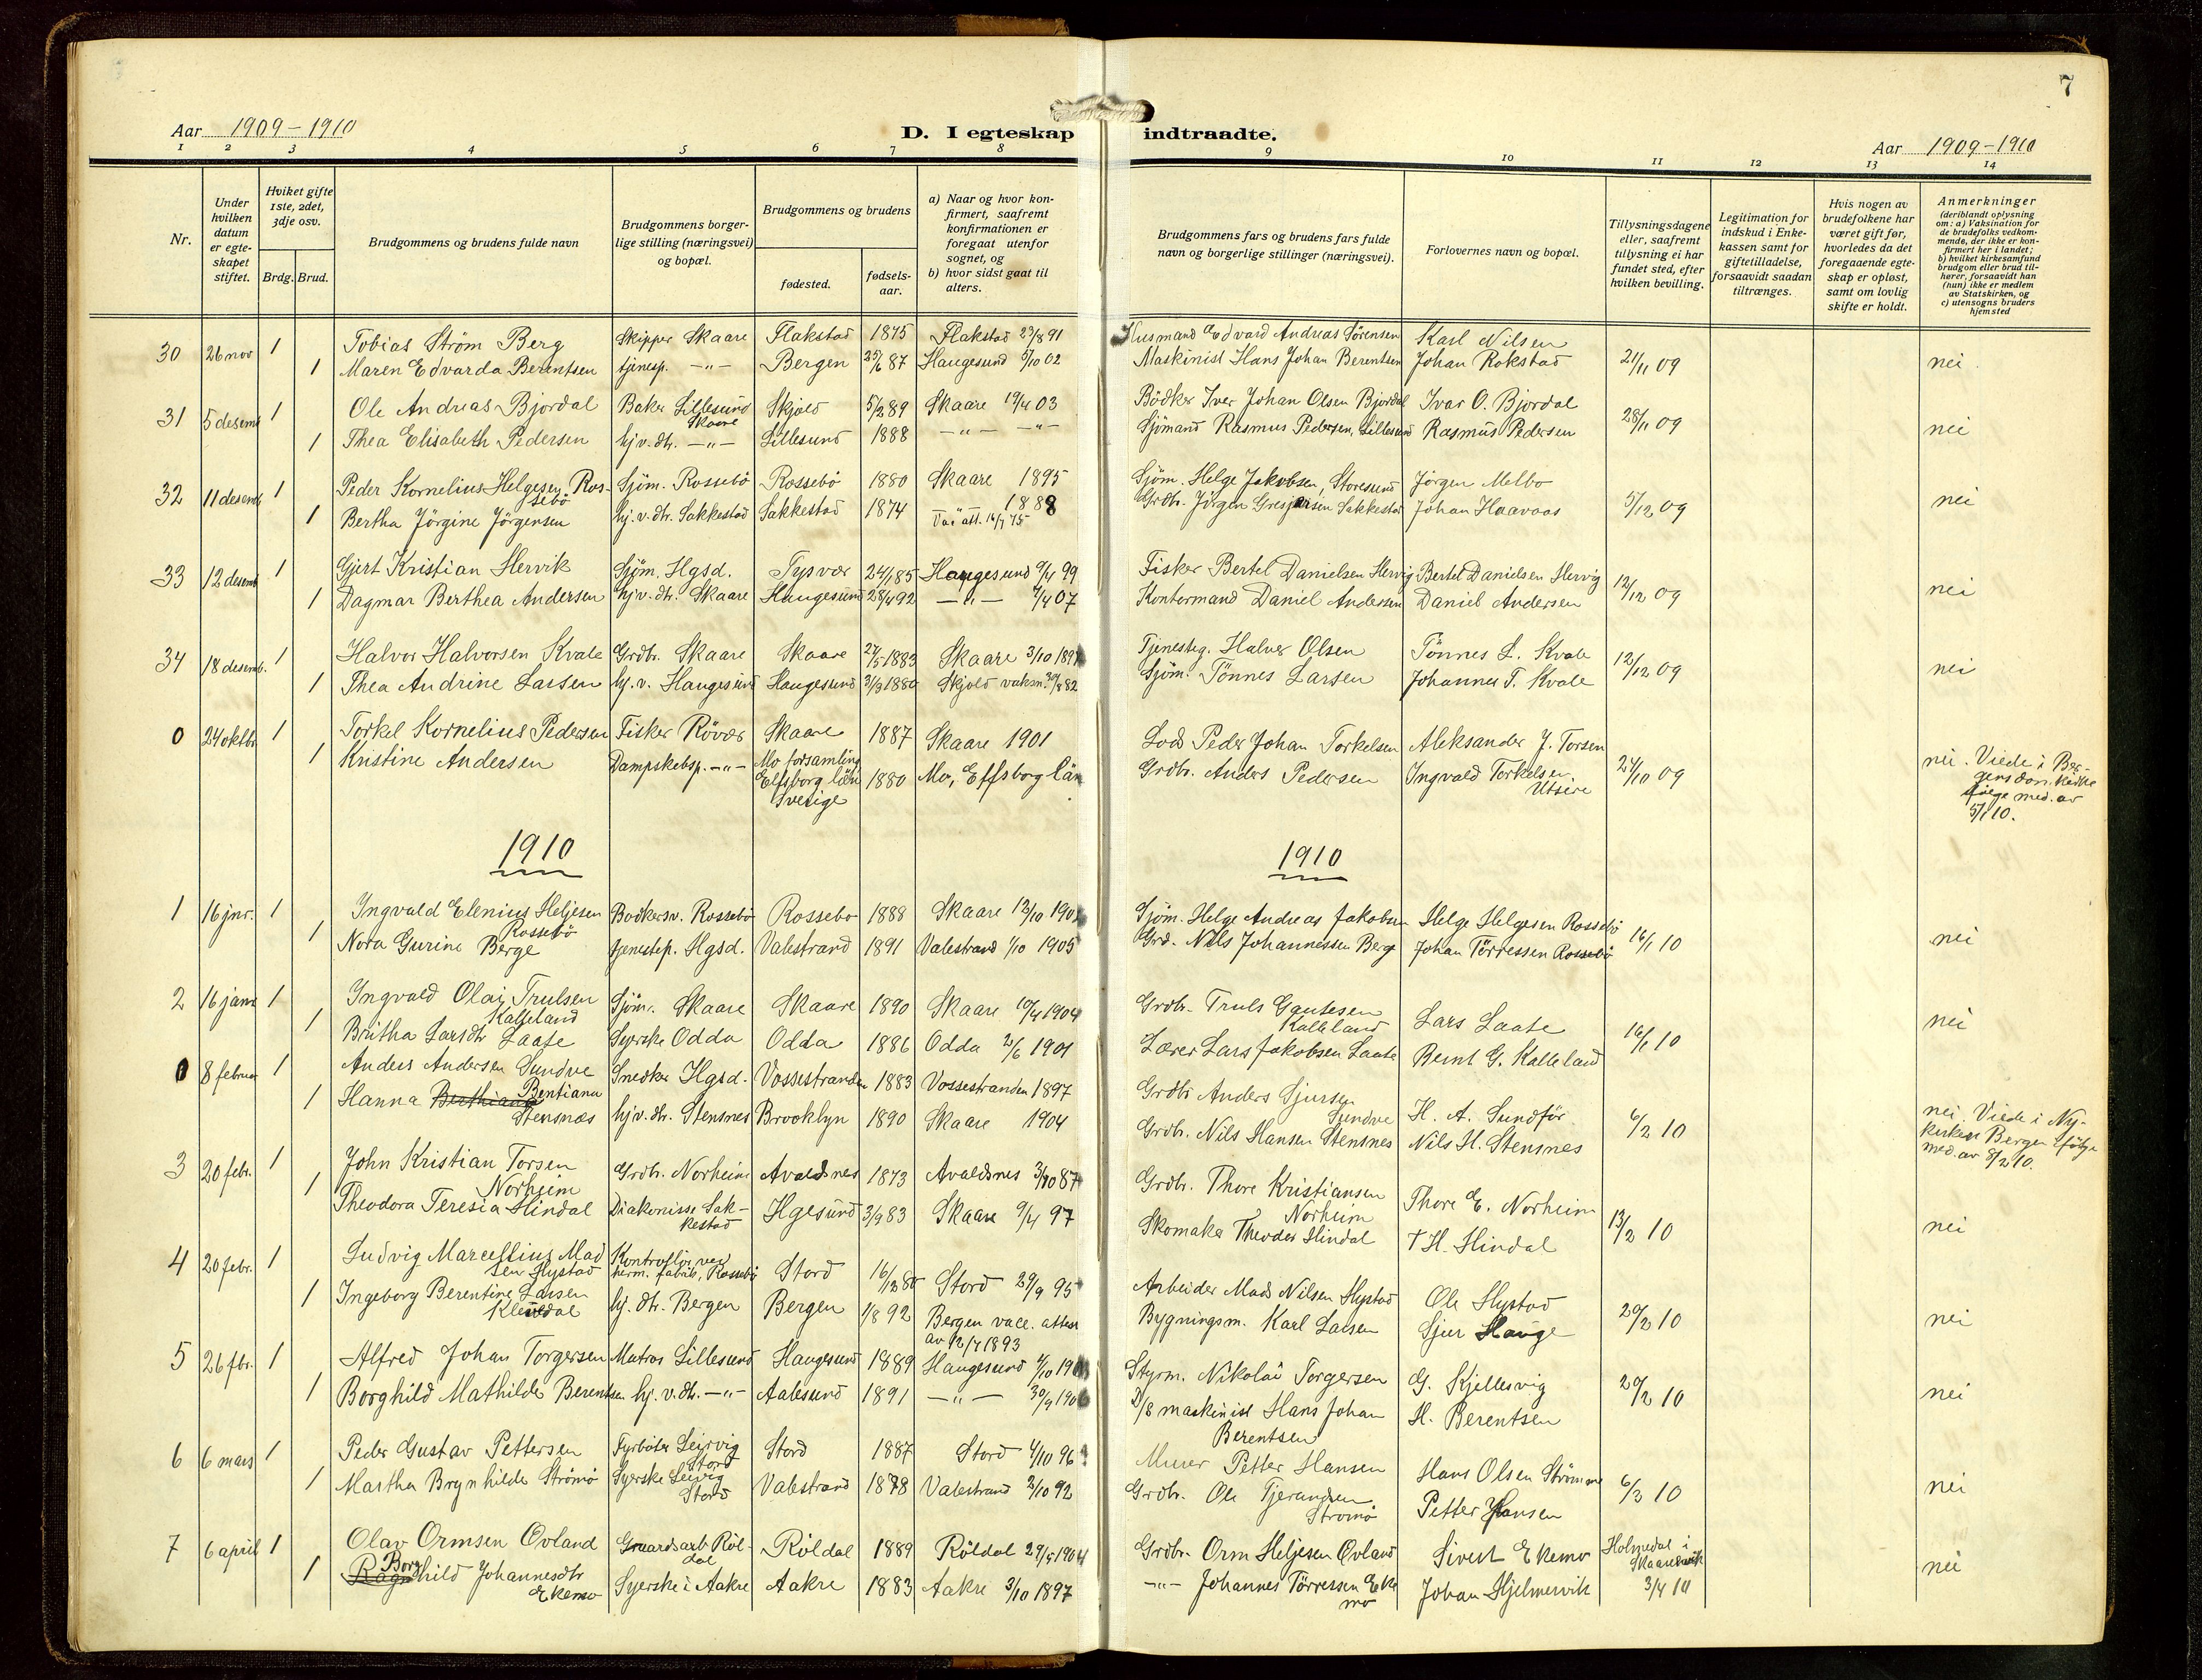 7
Aar 1909-1910
D. I egteskap indtraadte.
Aar 1909-1910
1 2 3 4 5 6 7 8 9 10 11 12 13 14
Nr.
Under hvilken datum er egteskapet stiftet.
Hviket gifte 1ste, 2det, 3dje osv.
Brdg. Brud.
Brudgommens og brudens fulde navn
Brudgommens borgerlige stilling (næringsvei) og bopæl.
Brudgommens og brudens
fødested.
fødselsaar.
a) Naar og hvor konfirmert, saafremt konfirmationen er foregaat utenfor sognet, og
b) hvor sidst gaat til alters.
Brudgommens fars og brudens fars fulde navn og borgerlige stillinger (næringsvei).
Forlovernes navn og bopæl.
Tillysningsdagene eller, saafremt tillysning ei har fundet sted, efter hvilken bevilling.
Legitimation for indskud i Enkekassen samt for giftetilladelse, forsaavidt saadan tiltrænges.
Hvis nogen av brudefolkene har været gift før, hvorledes da det foregaaende egteskap er opløst, samt om lovlig skifte er holdt.
Anmerkninger
(deriblandt oplysning om: a) Vaksination for de brudefolks vedkommende, der ikke er konfirmert her i landet; b) hvilket kirkesamfund brudgom eller brud tilhører, forsaavidt han (hun) ikke er medlem av Statskirken, og c) utensogns bruders hjemsted
30 26 nov 1 Tobias Strøm Berg Skipper Skaare Flakstad 1875 Flakstad 23/8 91 Husmand Edvard Andreas Sørensen Karl Nilsen
1 Maren Edvarda Berentsen tjenesp. -"- Bergen 25/6 87 Haugesund 5/10 02 Maskinist Hans Johan Berentsen Johan Rokstad 21/11 09 nei
31 5 desemb 1 Ole Andreas Bjordal Baker Lillesund Skaare Skjold 5/2 89 Skaare 19/4 03 Bødker Iver Johan Olsen Bjordal Ivar O. Bjordal
1 Thea Elisabeth Pedersen hj v. dtr. -"- Lillesund 1888 -"- -"- Sjømand Rasmus Pedersen, Lillesund Rasmus Pedersen 28/11 09 nei
32 11 desemb 1 Peder Kornelius Helgesen Rossebø Sjøm. Rossebö Rossebö 1880 Skaare 1895 Sjøm. Helge Jakobsen, Storesund Jörgen Melbo
1 Bertha Jörgine Jörgensen hj. v. dtr. Sakkestad Sakkestad 1874 -"- 1888 Vac att. 16/7 75 Grdbr. Jörgen Gresjersen Sakkestad Johan Haavaas 5/12 09 nei
33 12 desemb 1 Gjert Kristian Hervik Sjøm. Hgsd. Tysvær 24/1 85 Haugesund 9/4 99 Fisker Bertel Danielsen Hervig Bertel Danielsen Hervig
1 Dagmar Berthea Andersen hj v. dtr. Skaare Haugesund 28/4 92 -"- 7/4 07 Kontormand Daniel Andersen Daniel Andersen 12/12 09 nei
34 18 desemb. 1 Halvor Halvorsen Kvale Grdbr. Skaare Skaare 27/5 1883 Skaare 3/10 Tjenesteg. Halvor Olsen Tönnes L. Kvale
1 Thea Andrine Larsen hj. v. Haugesund Haugesund 31/3 1880 Skjold vaksn. Sjøm. Tönnes Larsen Johannes T. Kvale 12/12 09 nei
0 24 oktbr 1 Torkel Kornelius Pedersen Fisker Rövær Skaare 1887 Skaare 1901 Lods Peder Johan Torkelsen Aleksander J. Torsen
1 Kristine Andersen Dampskebsp. -"- Mo forsamling Elfsborg län Sverige 1880 Mo, Elfsborg län Grdbr. Anders Pedersen Ingvald Torkelsen. Utsire 24/10 09 nei. Viede i Bergens domkirke ifølge med. av 5/1 10.
1910
1910
1 16 jnr. 1 Ingvald Elenius Heljesen Rossebö Bödkersv. Rossebö Rossebö 1888 Skaare 12/10 Sjøm. Helge Andreas Jakobsen Helge Helgesen Rossebö
1 Nora Gurine Berge tjenestep. Hgsd. Valestrand 1891 Valestrand 1/10 1905 Grd. Nils Johannessen Berge Johan Törressen Rossebö 16/1 10 nei
2 16 janr 1 Ingvald Olai Trulsen Kalleland Sjøm. Skaare Skaare 1890 Skaare 10/4 1904 Grdbr. Truls Gautesen Kalleland Lars Laate
1 Britha Larsdtr Laate Syerske Odda Odda 1886 Odda 2/6 1901 Lærer Lars Jakobsen Laate Bernt G. Kalleland 16/1 10 nei
0 8 februar 1 Anders Andersen Sundve Snedker Hgsd. Vossestranden 1883 Vossestranden 1897 Grdbr Anders Sjursen Sundve H. A. Sundför
1 Hanna Berthiane Bentiana Stensnæs hj v. dtr. Stensnes Brooklyn 1890 Skaare 1904 Grdbr. Nils Hansen Stensnes Nils H. Stensnes 6/2 10 nei. Viede i Nykirken Bergen ifølge med. av 8/2 10.
3 20 febr. 1 John Kristian Torsen Norheim Grdbr. Norheim Avaldsnes 1873 Avaldsnes 3/10 87 Grdbr. Thore Kristiansen Norheim Thore E. Norheim
1 Theodora Teresia Hindal Diakonisse Sakkestad Hgesund 3/9 83 Skaare 9/4 97 Skomaker Theodor Hindal T H. Hindal 13/2 10 nei
4 20 febr. 1 Ludvig Marcellius Madsen Hystad Kontrollör ved herm. fabrik, Rossebö Stord 16/12 80 Stord 29/9 95 Arbeider Mads Nilsen Hystad Ole Hystad
1 Ingeborg Berentine Larsen Klevdal hj. dtr. Bergen Bergen 1/8 92 Bergen vacc. attest av 12/7 1893 Bygningsm. Karl Larsen Sjur Hauge 20/2 10 nei
5 26 fbr. 1 Alfred Johan Torgersen Matros Lillesund Haugesund 1889 Haugesund Styrm. Nikolai Torgersen G. Kjellesvig
1 Borghild Mathilde Berentsen hj. v. dtr. -"- Aalesund 1891 -"- 30/9 1906 D/S maskinist Hans Johan Berentsen H. Berentsen 20/2 10 nei
6 6 mars 1 Peder Gustav Pettersen Fyrböter Leirvig Stord Stord 1887 Stord 4/10 96 Murer Petter Hansen Hans Olsen Strömme
1 Martha Brynhilde Strömö Syerske Leirvig Stord Valestrand 1878 Valestrand 2/10 92 Grdbr. Ole Tjerandsen Strömö Petter Hansen 6/3 10 nei
7 6 april 1 Olav Ormsen Övland Gaardsarb Röldal Röldal 1889 Röldal 29/5 1904 Grdbr. Orm Heljesen Övland Sivert Ekemo Holmedal i Skaanevik
1 Ragnhild Borghild Johannesdtr Ekemo Syerske i Aakre Aakre 1883 Aakre 3/10 1897 -"- Johannes Törressen Ekemo Johan Hjelmervik 3/4 10 nei